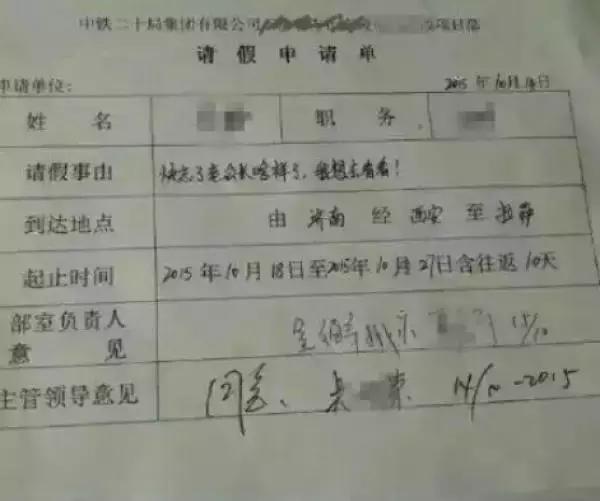 中铁二十局集团有限公司 项目部
请假申请单
申请单位: 2015年10月14日
姓名 职务
请假事由 快忘了老公长啥样了,我想去看看!
到达地点 由 济南 经 西安 至 拉萨
起止时间 2015年10月18日至2015年10月27日含往返10天
部室负责人意见 呈 15/10
主管领导意见 同意. 14/10-2015